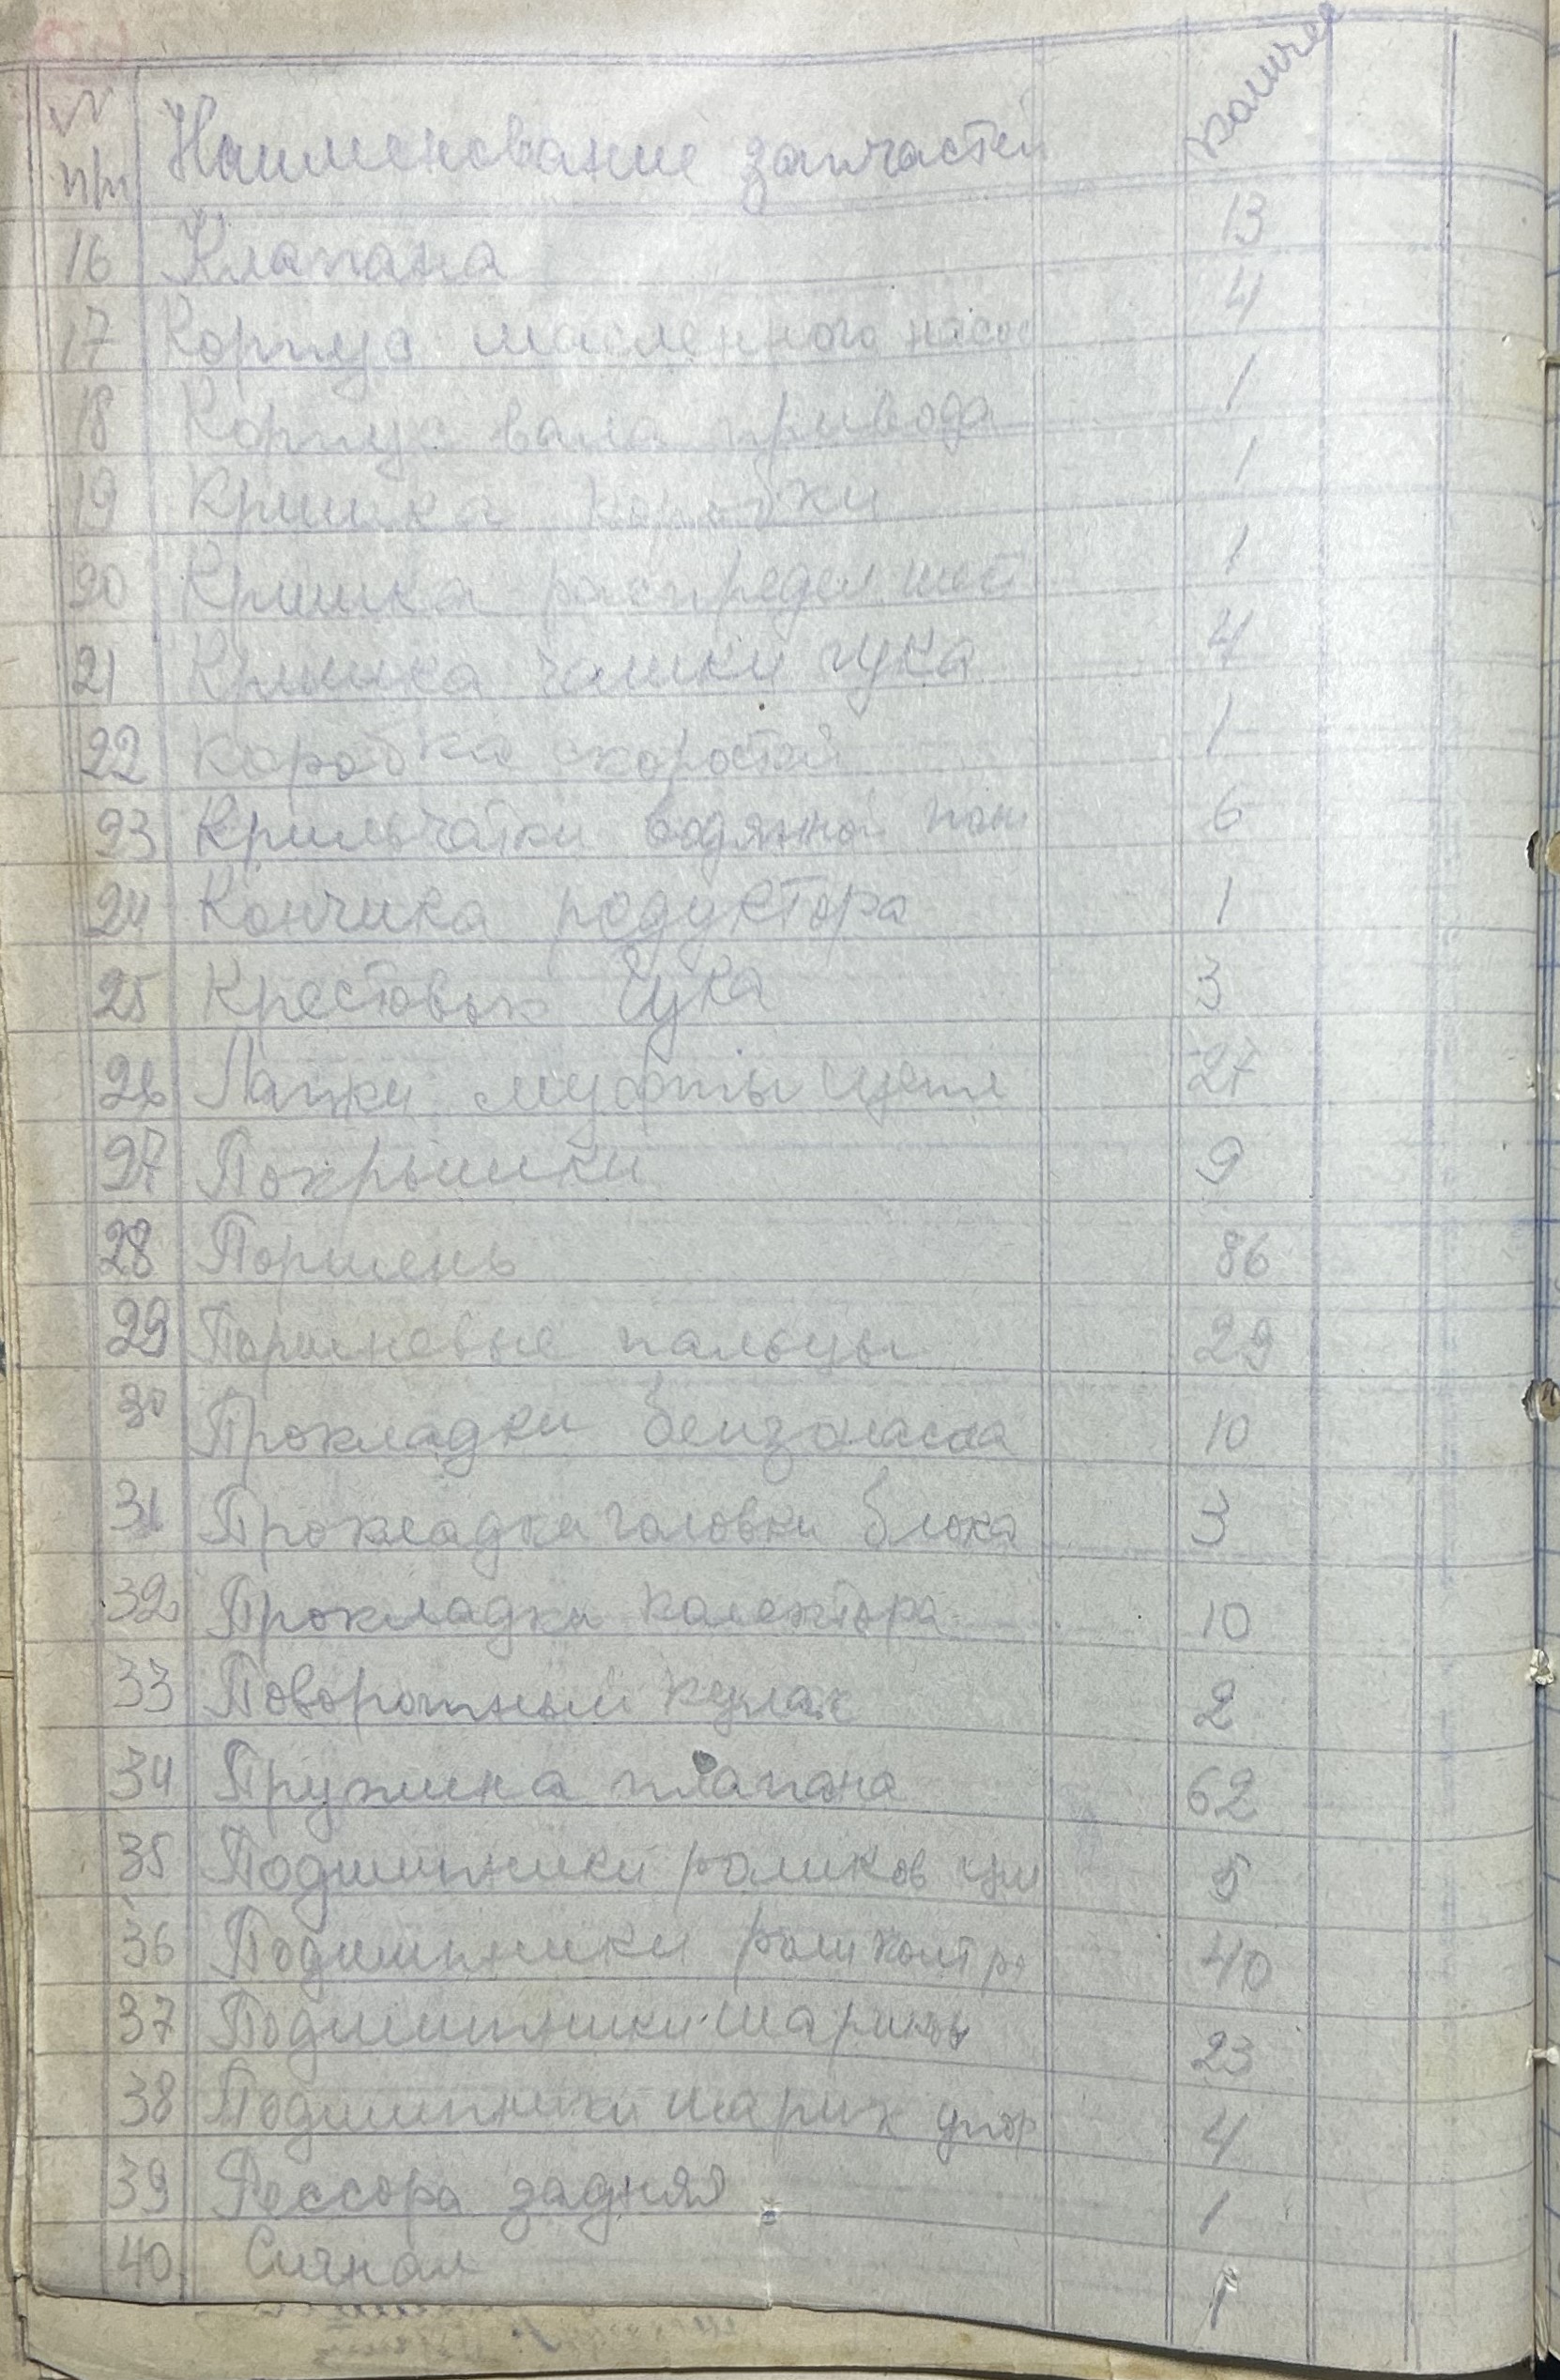 № пп Наименование запчастей количе
16 Клапана 13
17 Корпус масленного насос 4
18 Корпус вала привода 1
19 Кришка коробки 1
20 Кришка распредел шест 1
21 Кришка чашки гука 4
22 коробка скоростей 1
23 Крильчатки водянной пом 6
24 редуктора 1
25 Крестовик Гука 3
26 Лапки муфты сцепл 27
27 Покрышки 9
28 Поршень 86
29 Поршневые пальцы 29
30 Прокладки бензонасоса 10
31 Прокладки головки блока 3
32 Прокладки калектора 10
33 Поворотный кулак 2
34 Пружина клапана 62
35 Подшипники роликов цил 5
36 Подшипники 40
37 Подшипники шариков 23
38 Подшипники шарик упор 4
39 Рессора задняя 1
40 Сигнал 1